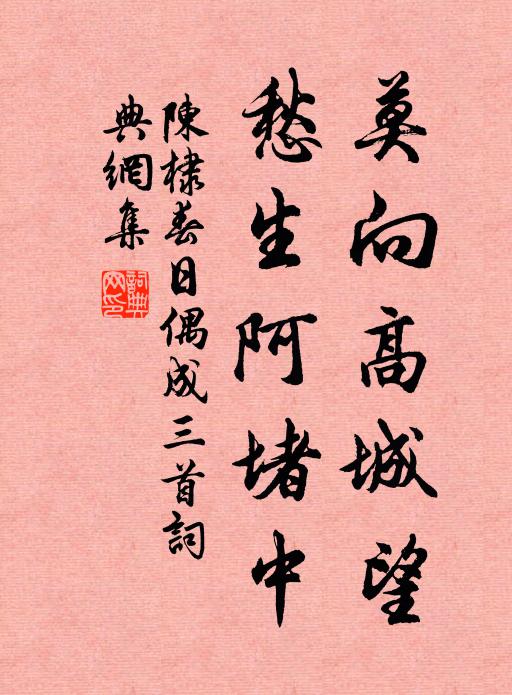 莫向高城望
愁生阿堵中
陳棣春日偶成三首詞
典網集
詞典网印